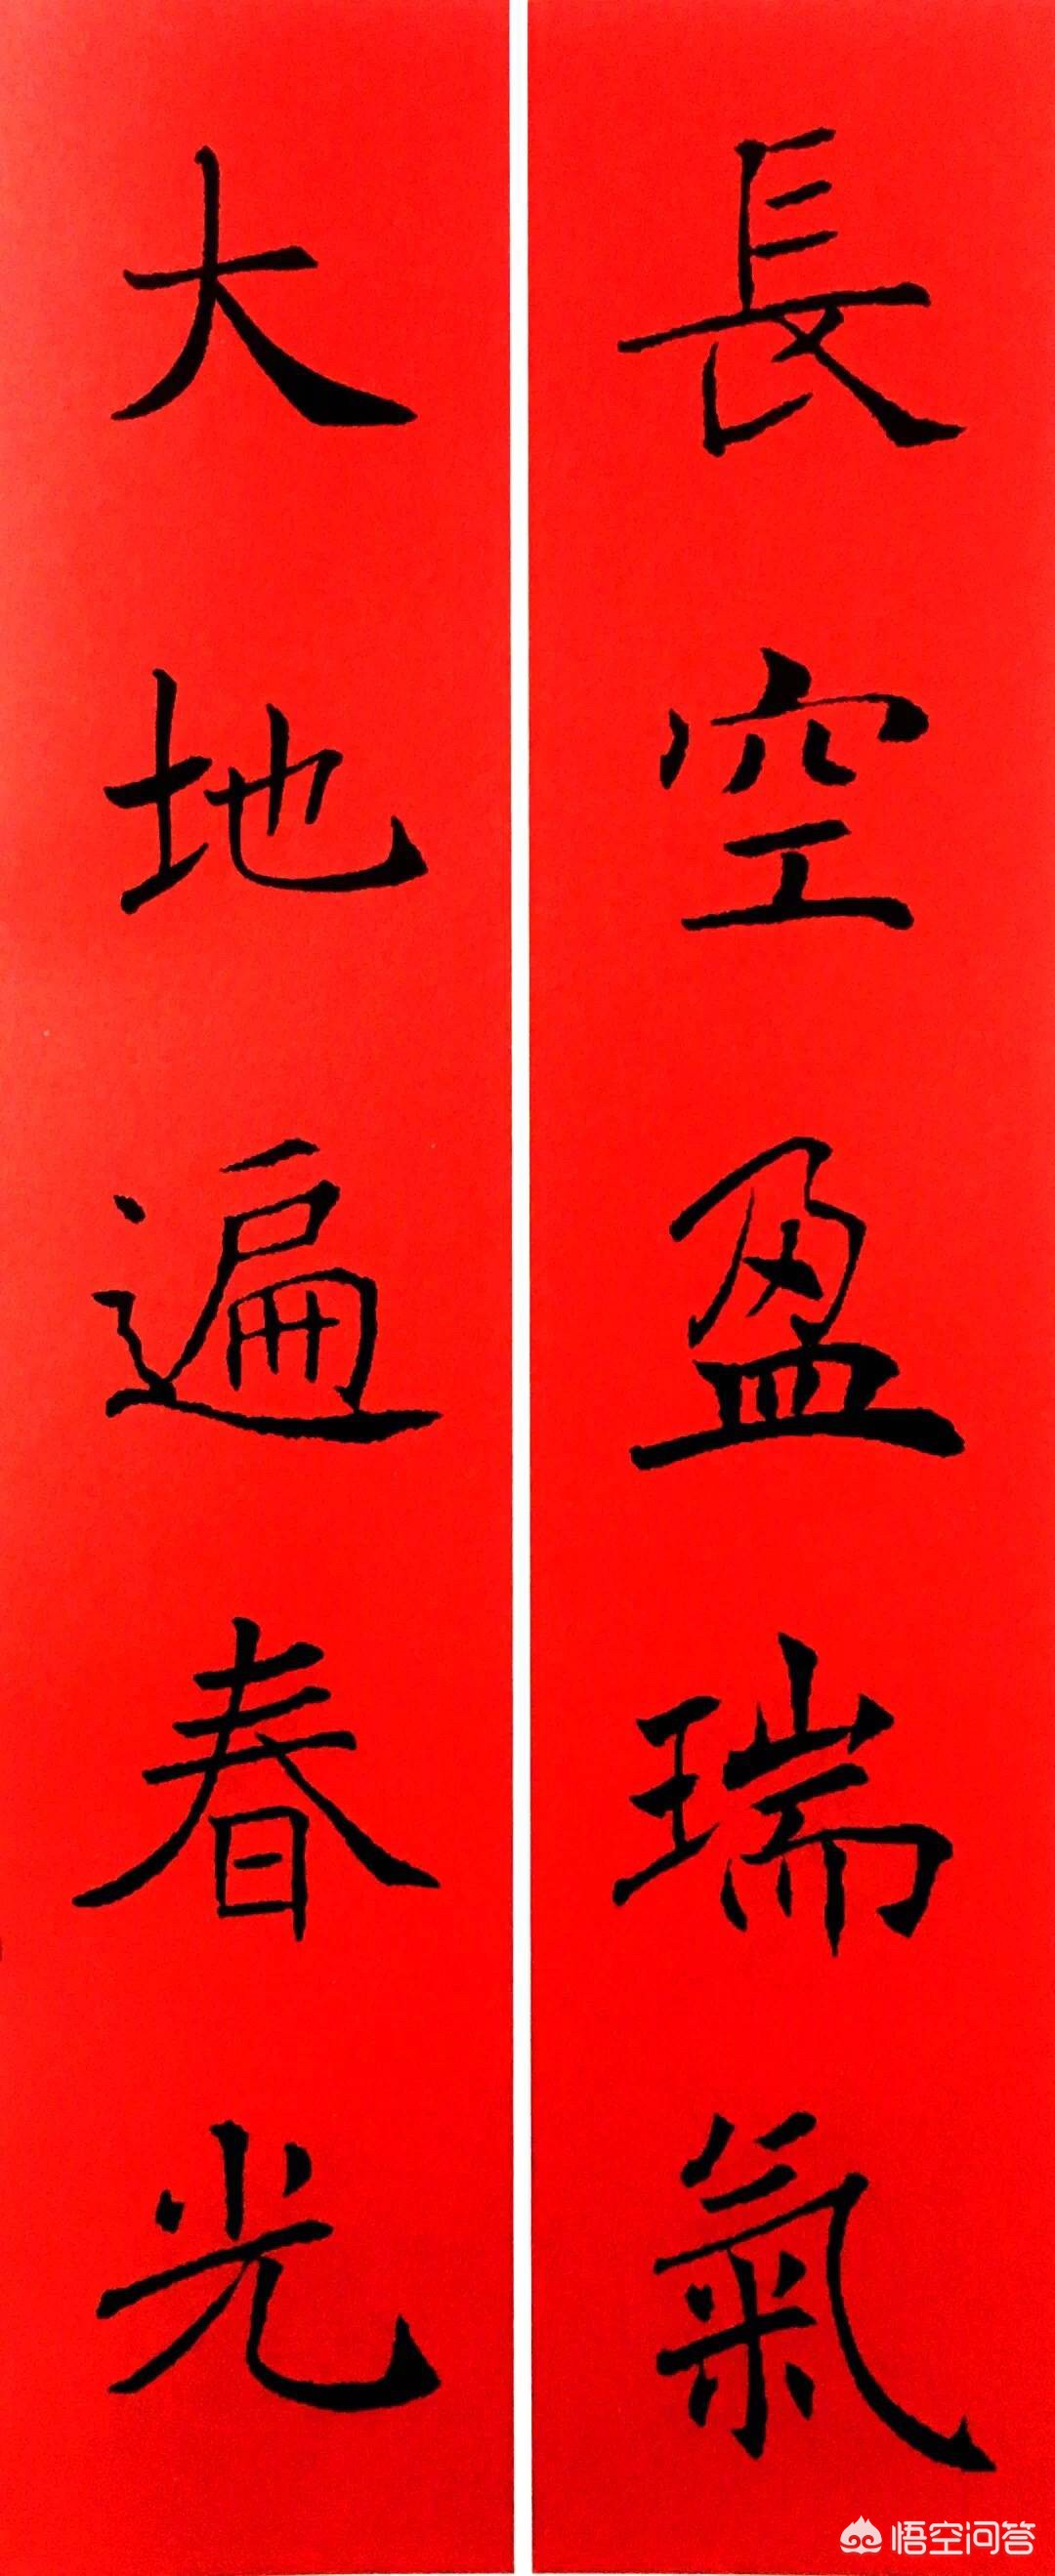 長空盈瑞氣
大地遍春光
悟空问答